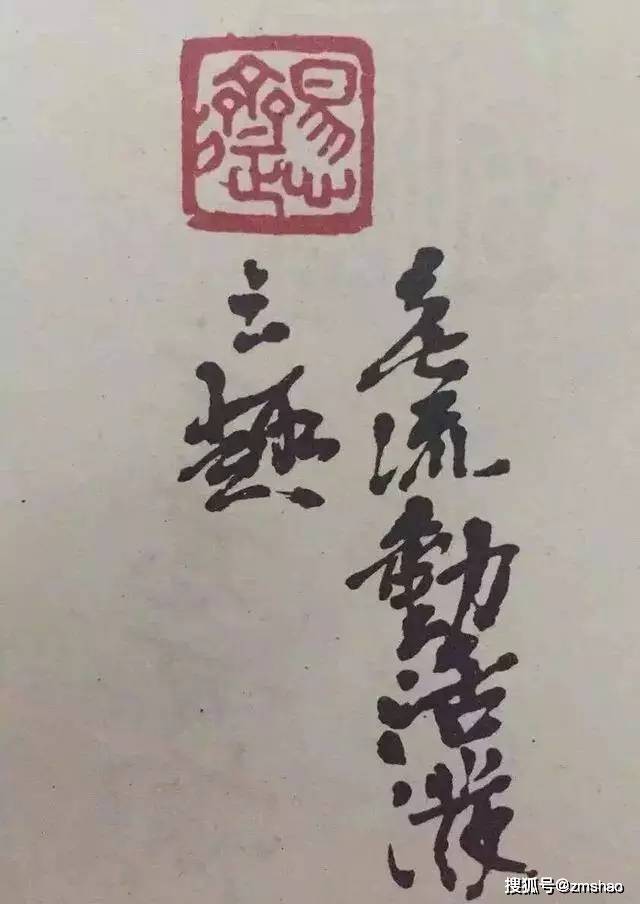 無流動活潑
之趣
搜狐号@zmshao